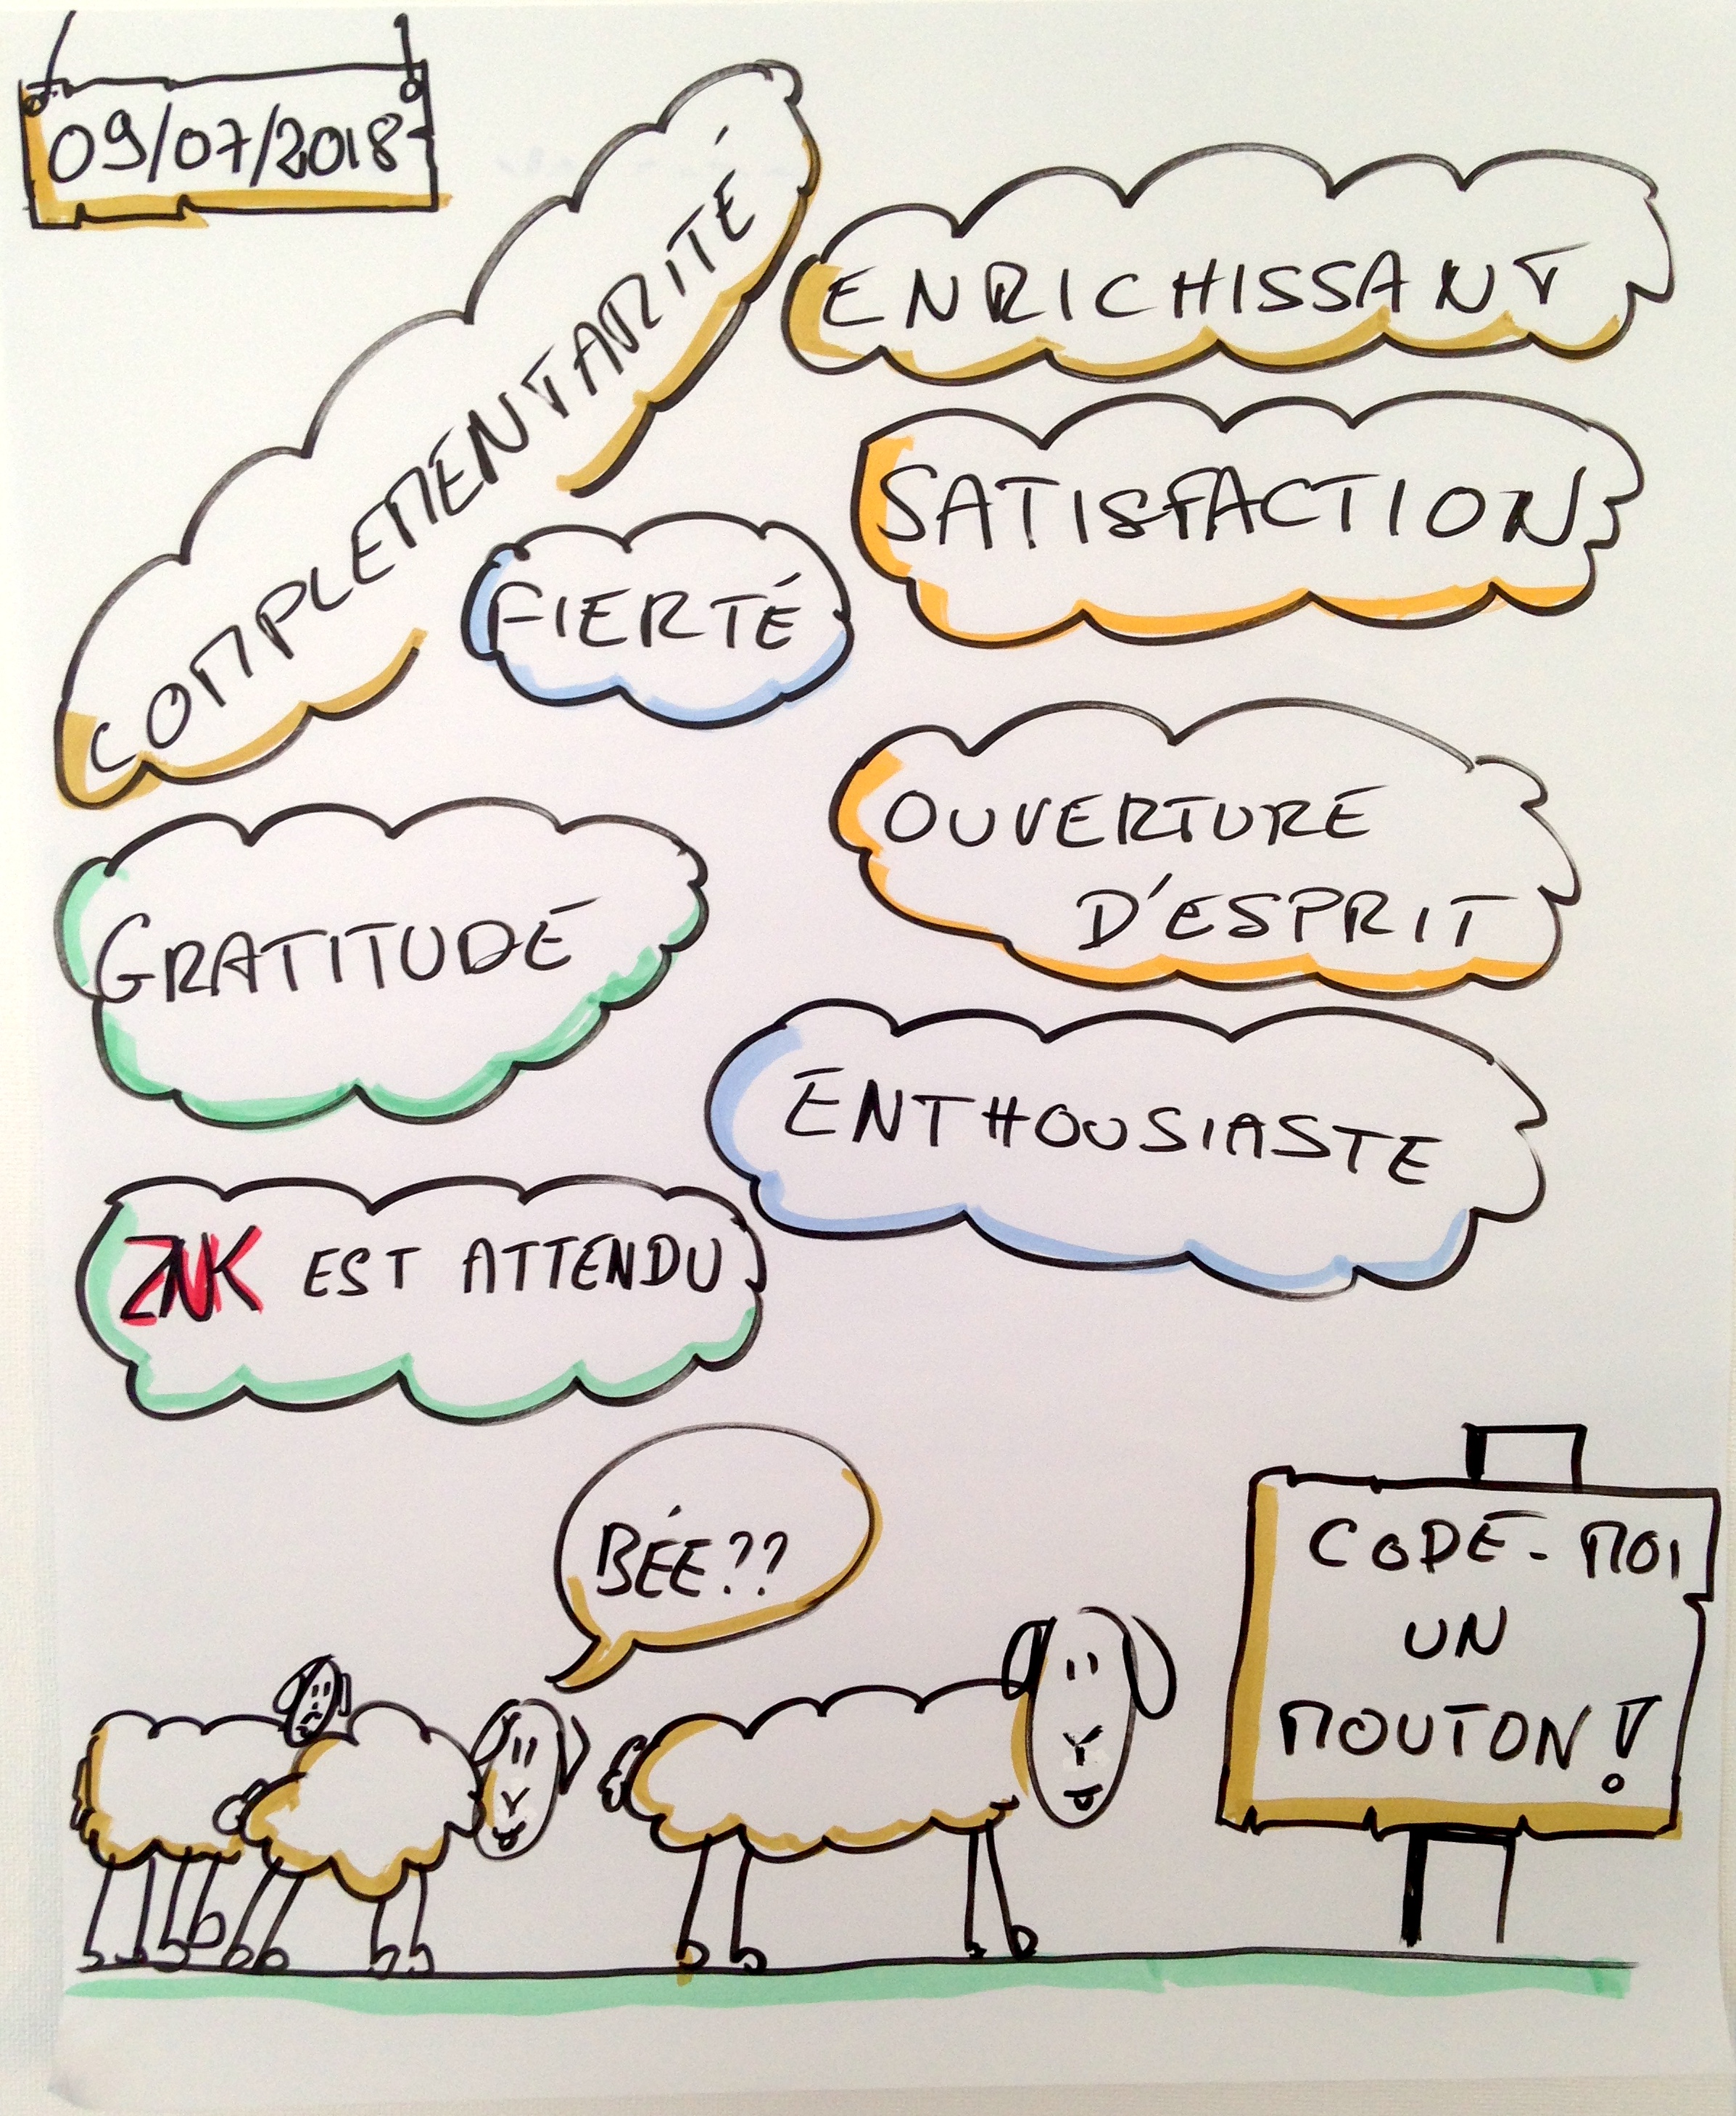 09/07/2018
COMPLEMENTARITÉ
ENRICHISSANT
SATISFACTION
FIERTÉ
OUVERTURE
D'ESPRIT
GRATITUDE
ENTHOUSIASTE
ZNK EST ATTENDU
BÉE??
CODE-MOI
UN
MOUTON!